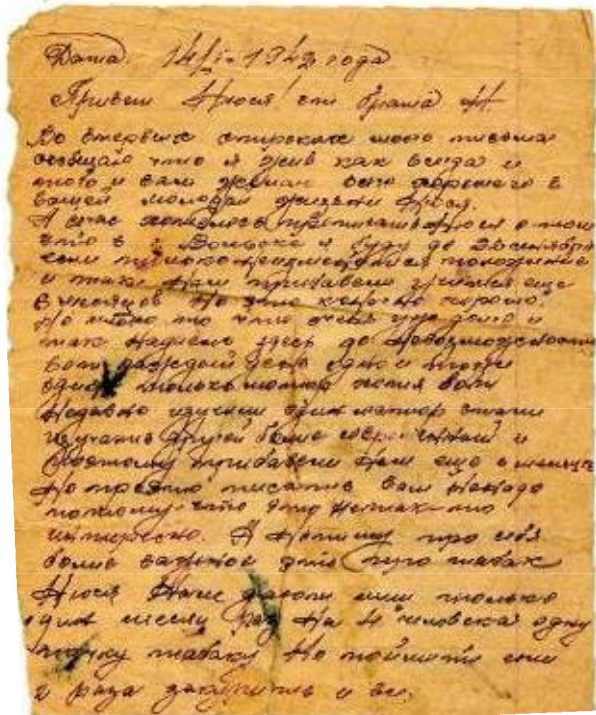 Дата 14/I-1942 года
Привет Нюся! от брата
Во первых строках моего письма
сообщаю что я жив как всегда и
того и вам желаю всего хорошего в
вашей молодой жизни Нюся.
А сичас хотелось прописать Нюся о том
что в Вольске я буду до 20 сентября
если только положение
и так Нам прибавели учится еще
6 месяцев Но это конечно хорошо,
Но то что очень уж долго и
так надоело здесь до Невозможности
Вот каждый день одно и тоже
только мотор
Недавно изучили один матор стали
изучать другой более и
поэтому прибавели Нам еще 6 месяце
Но про это писать Вам Ненадо
потому что это нетак-то
интересно. А Напишу про себя
более важное это про табак
Нюся Наме давали или только
один месяц раз На 4 человека одну
пачку табаку Но поймите сами
2 раза закурить и все.